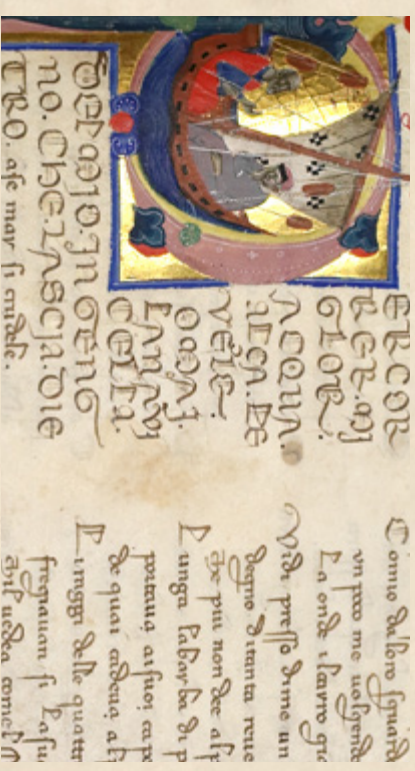 ER COR
RER. MI
GLOR.
ACQUA.
ALÇA. LE
VELE.
OMAI.
LANAVI
CELLA.
DELMIO. IN GENG
NO. CHELASCIA. DIE
TRO. ase mar si crudele.
Comio daloro sguard
vn poco me uolgend
La onde ilcarro
Vidi presso dime un
degno ditanta reue
Che piu non dee al
Lunga labarba di p
portaua aisuoi cape
de quai cadeua al
Li raggi delle quattr
fregiauan si lasu
chil uedea come